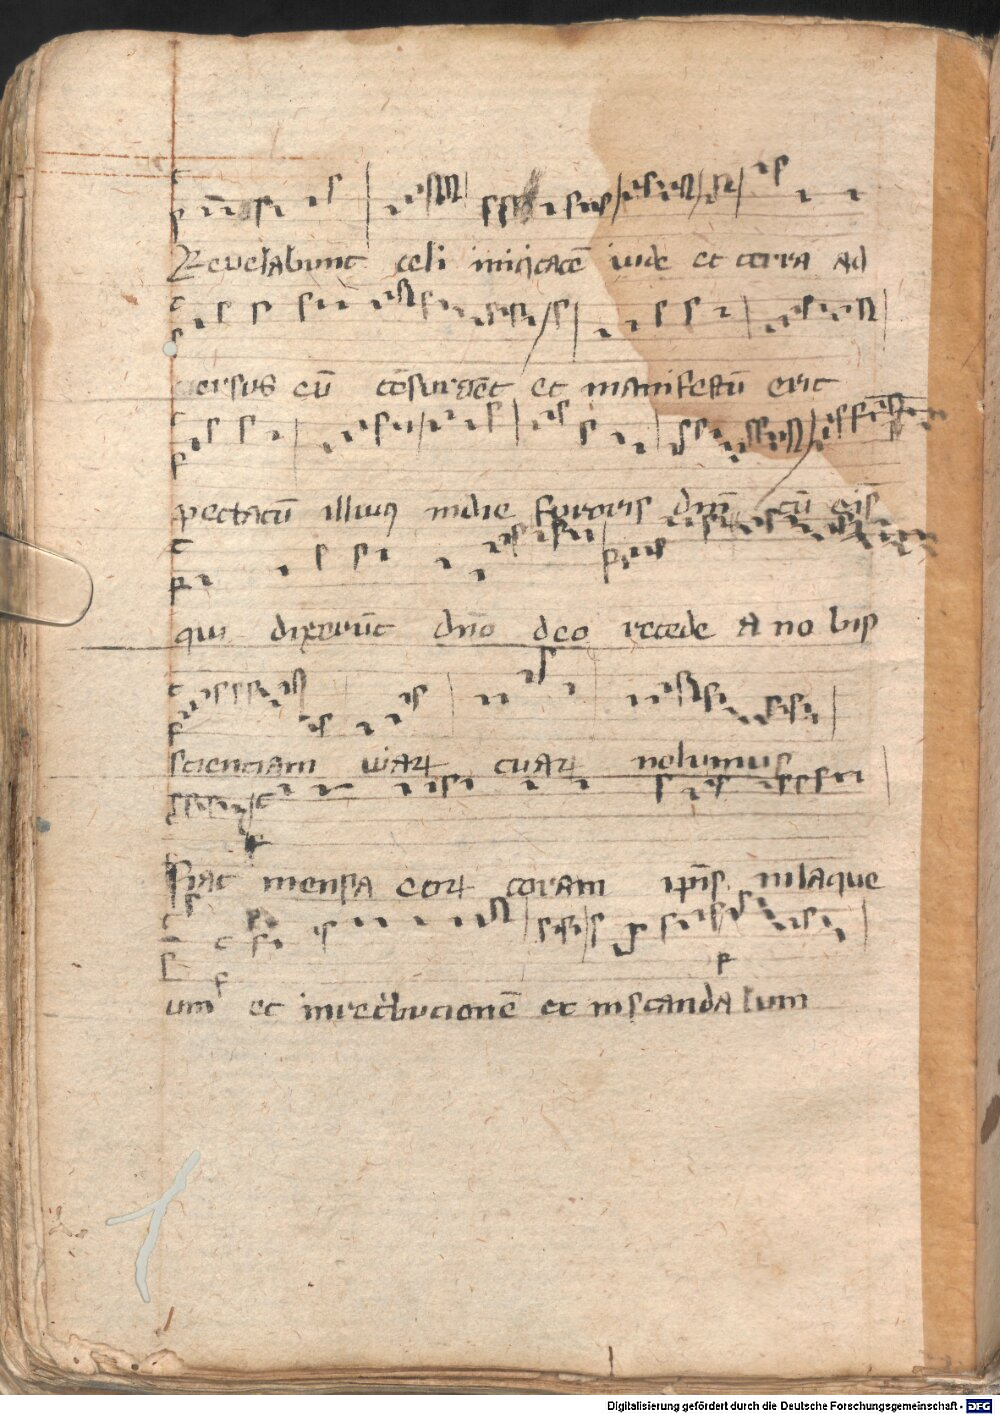 Revelabunt celi iniqitatē iude et terra ad
uersus eū cōsurgēt et manifestū erit
pectatū illius indie furoris dnī cū eis
qui dixerūt dnō deo recede a nobis
scienciam uiaꝝ tuaꝝ nolumus
fiat mensa eoꝝ coram ip̄is inlaque
um et inretribucionē et inscandalum
Digitalisierung gefördert durch die Deutsche Forschungsgemeinschaft - DFG